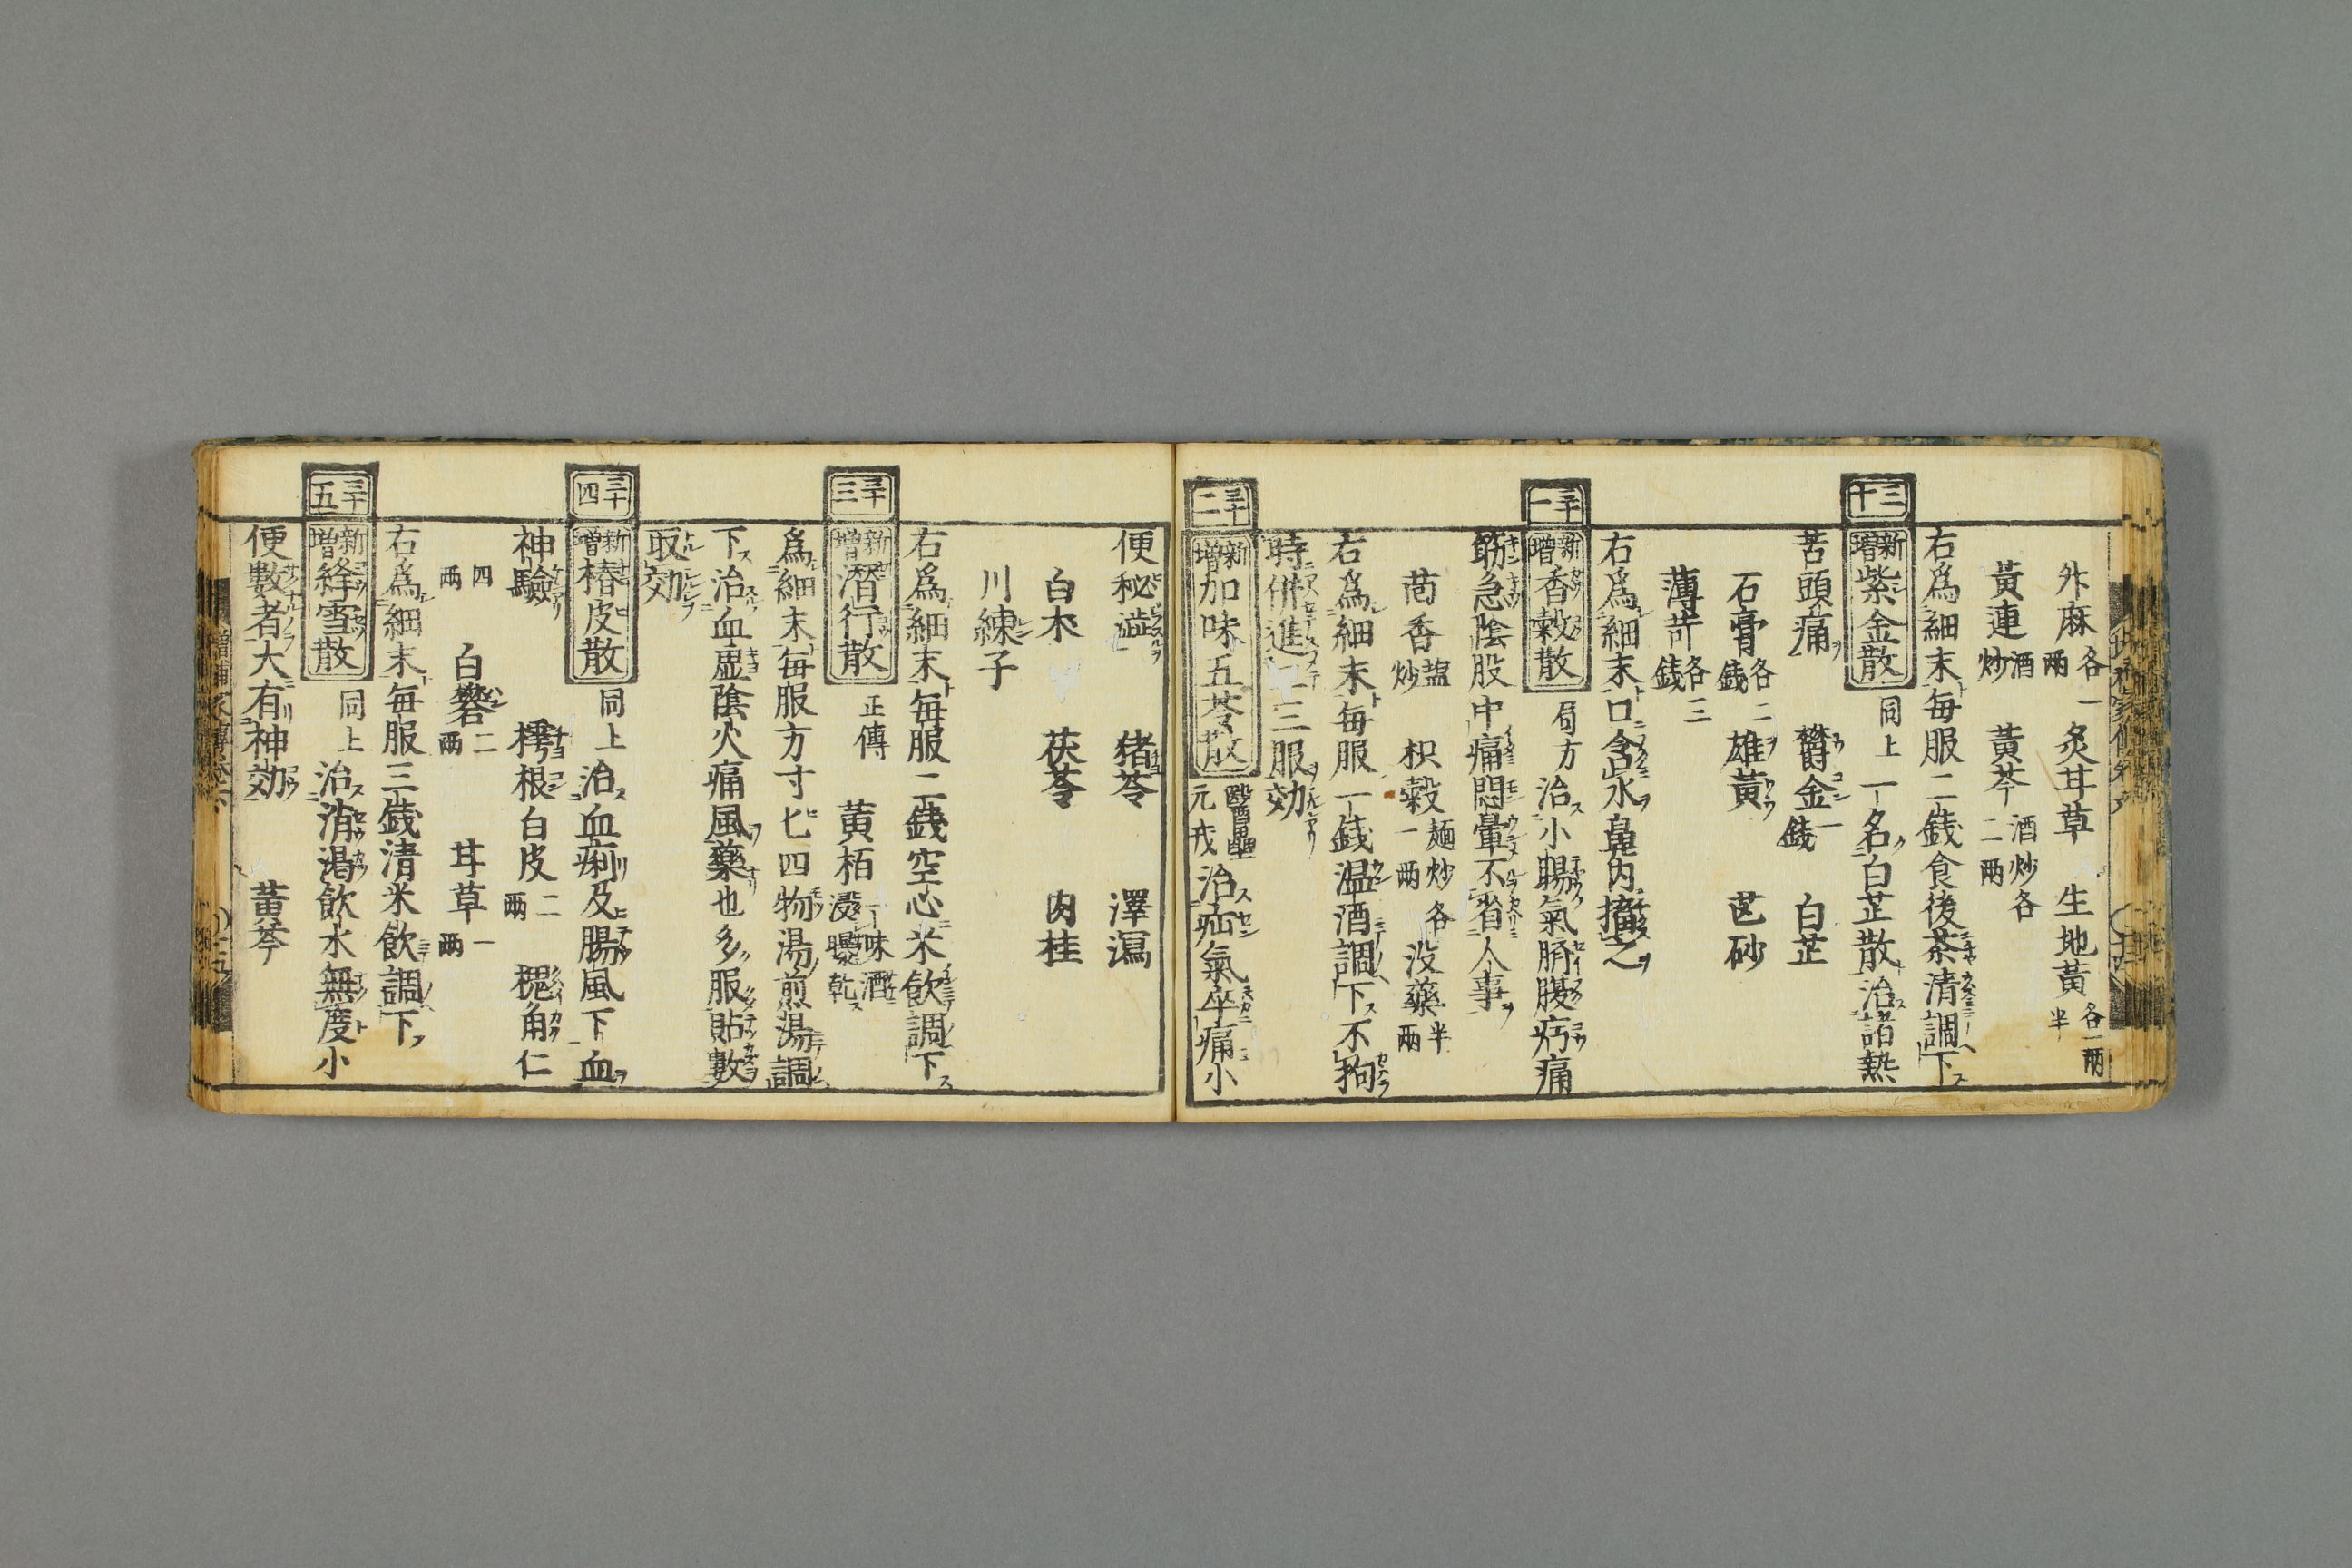 升麻各一兩 炙甘草 生地黃各一兩半
黃連酒炒 黃芩酒炒各二兩
右爲細末毎服二錢食後茶清調下
三十 新增紫金散 同上 一名白芷散治諸熱
苦頭痛 欝金一錢 白芷
石膏各二錢 雄黃 芒砂
薄苛各三錢
右爲細末口含水鼻内搐之
三十一 新增香穀散 局方 治小腸氣臍腹㽲痛
筋急陰股中痛悶暈不省人事
茴香塩炒 枳穀麺炒一兩 各没藥半兩
右爲細末毎服一錢温酒調下不拘
時併進二三服効
三十二 新增加味五苓散 醫壘元戎 治疝氣卒痛小
便秘澁 猪苓 澤瀉
白朮 茯苓 肉桂
川練子
右爲細末毎服二錢空心米飲調下
三十三 新增潛行散 正傳 黃栢一味酒浸曝乾
爲細末毎服方寸匕四物湯煎湯調
下治血虛陰火痛風藥也多服貼數
取効
三十四 新增椿皮散 同上 治血痢及腸風下血
神驗 樗根白皮二兩 槐角仁
四兩 白礬二兩 甘草一兩
右爲細末毎服三錢清米飲調下
三十五 新增絳雪散 同上 治消渇飲水無度小
便數者大有神効 黃芩